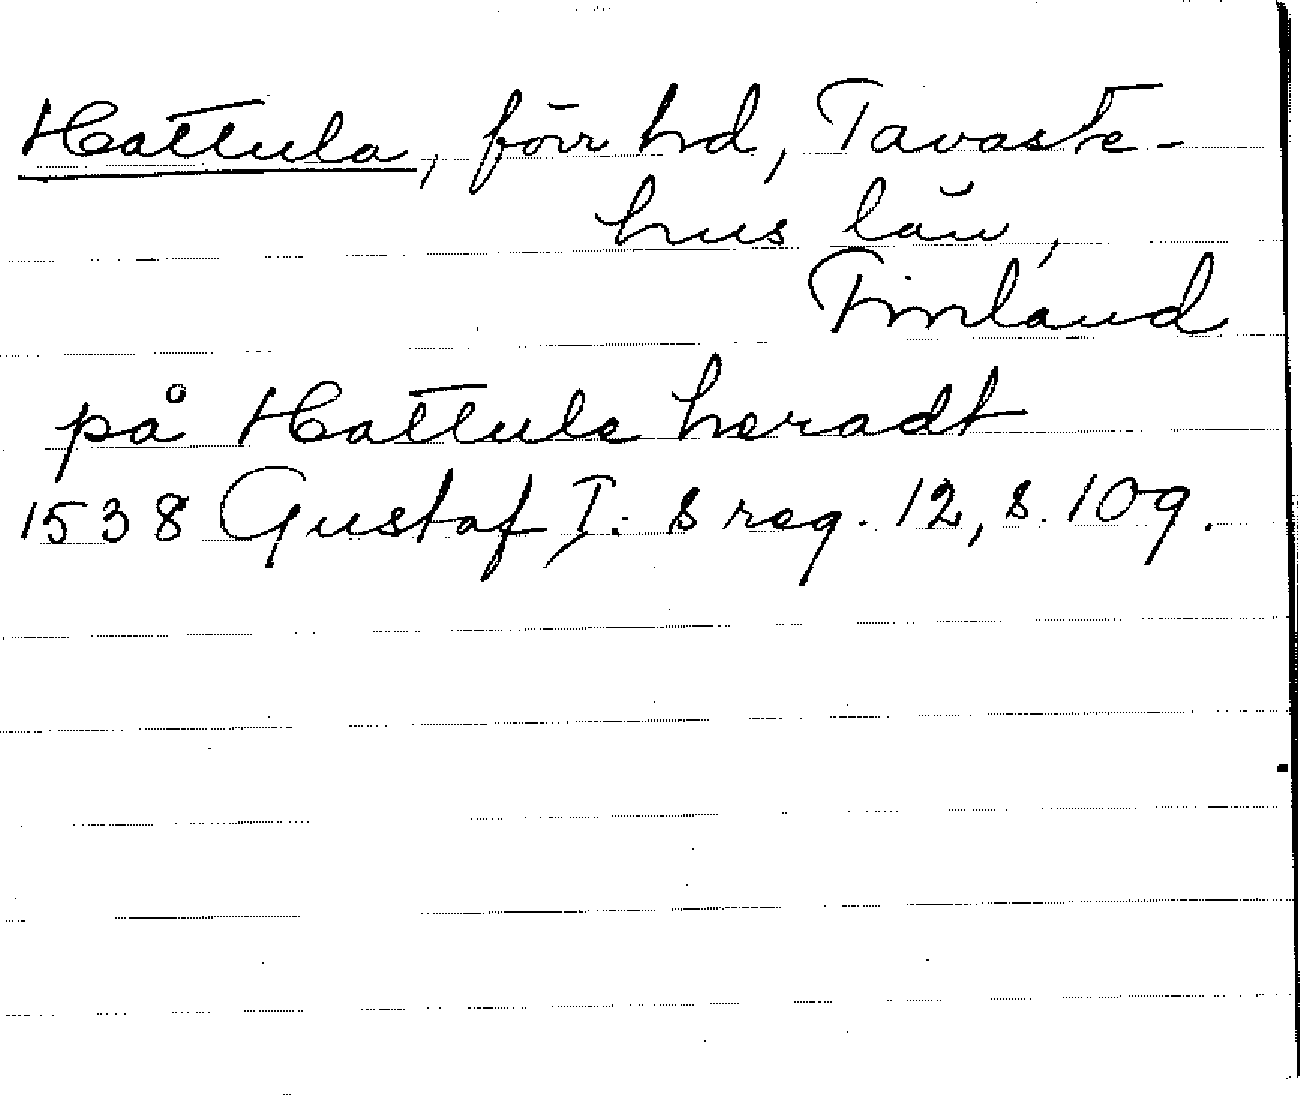 Hattula, förr hd, Tavaste-
hus län,
Finland
på Hattula heradt
1538 Gustaf I:s reg. 12, s. 109.